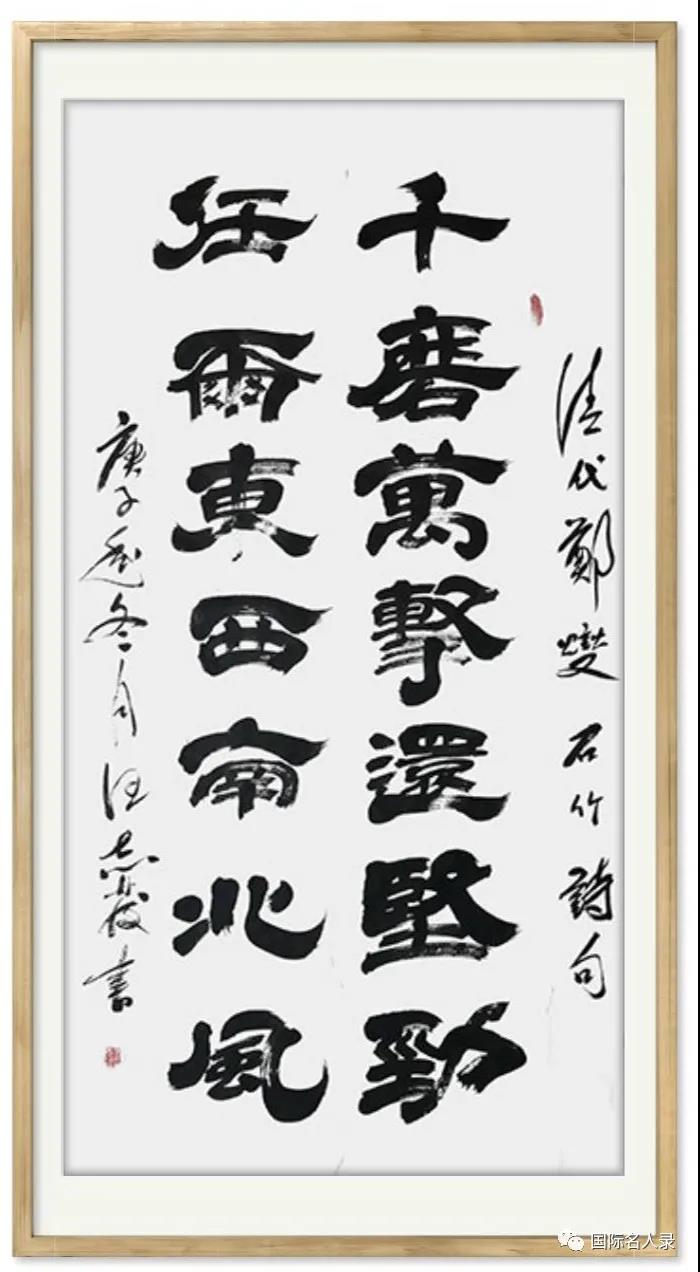 清代鄭燮石竹詩句
千磨萬擊還堅勁
任爾東西南北風
庚子年冬月汪志書
国际名人录